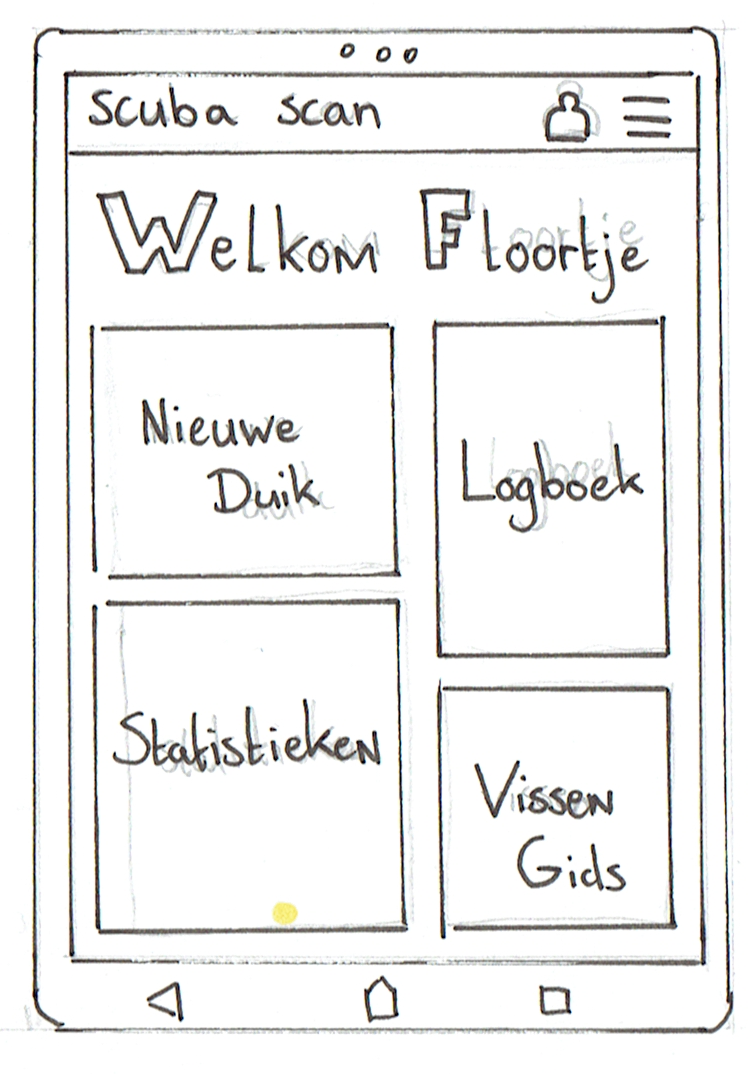 Scuba scan
Welkom Floortje
Nieuwe
Duik
Logboek
Statistieken
Vissen
Gids